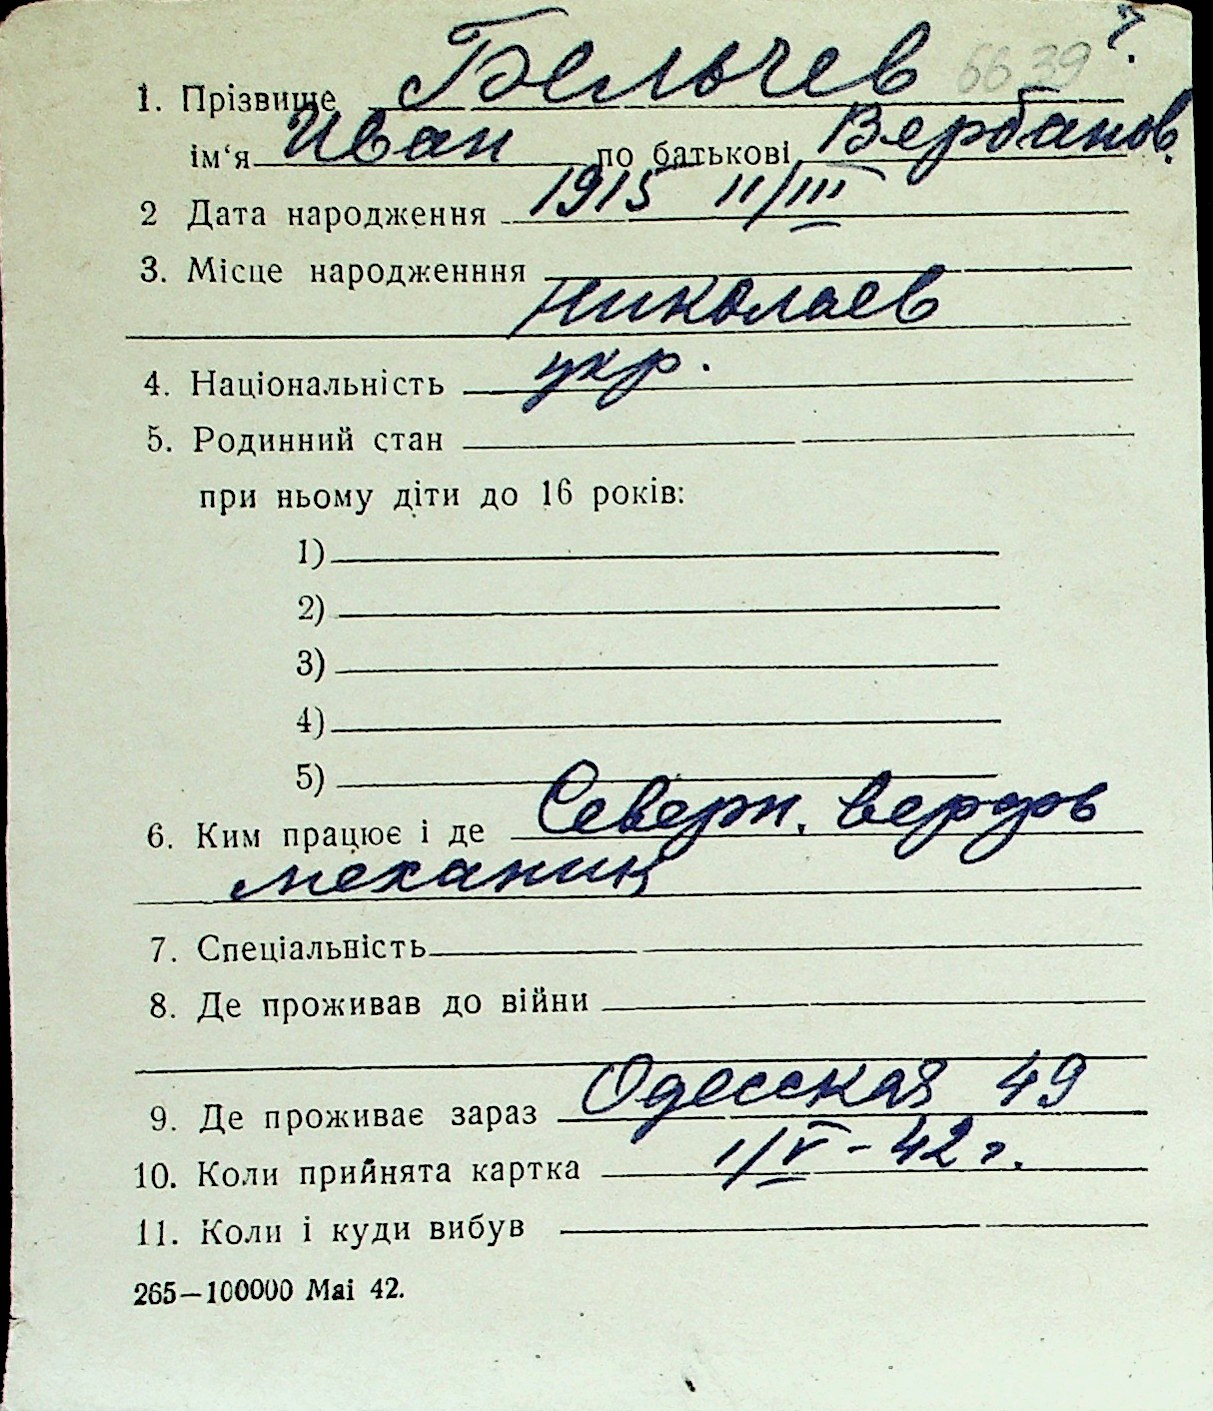 7.
1. Прізвище Бельчев 6639
ім'я Иван по батькові Вербанов.
2 Дата народження 1915 11/III
3. Місце народженння
Николаев
4. Національність укр.
5. Родинний стан
при ньому діти до 16 років:
1)
2)
3)
4)
5)
6. Ким працює і де Северн. верфь
механик
7. Спеціальність
8. Де проживав до війни
9. Де проживає зараз Одесская 49
10. Коли прийнята картка 1/V - 42 г.
11. Коли і куди вибув
265—100000 Mai 42.